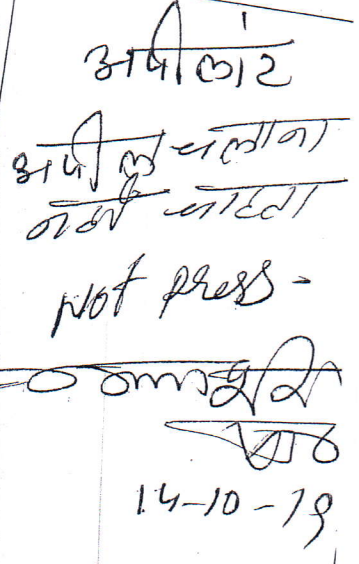 अपीलांट
अपील चलाना
नहीं चाहता
Not press -
14-10-19